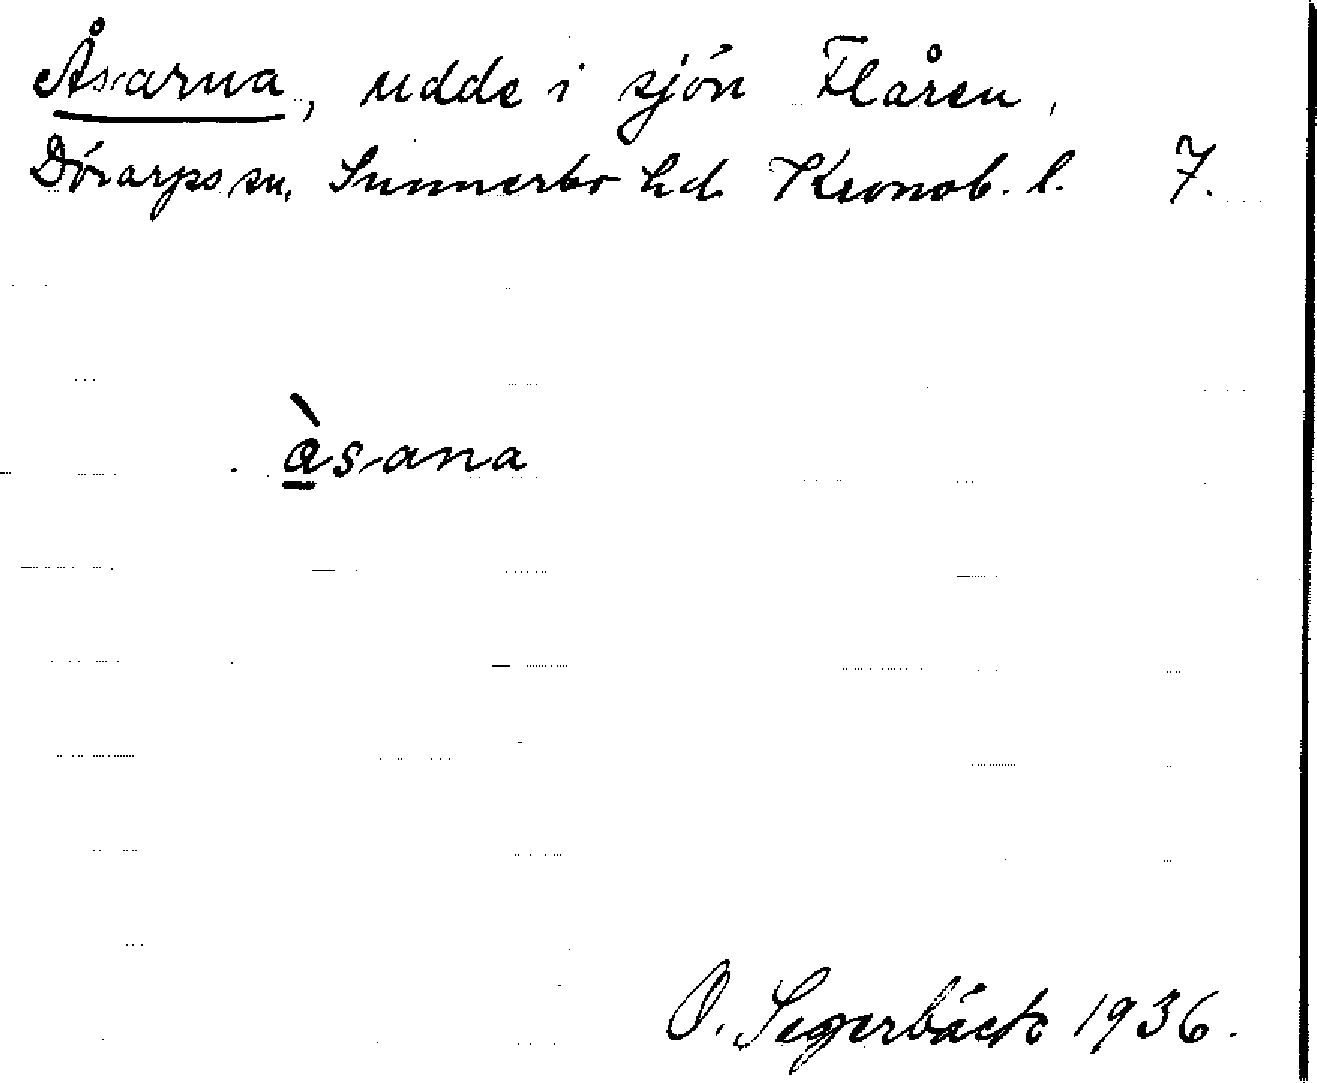 Åsarna, udde i sjön Flåren,
Dörarps sn. Sunnerbo hd Kronob. l. 7.
àsana
O. Segerbäck 1936.